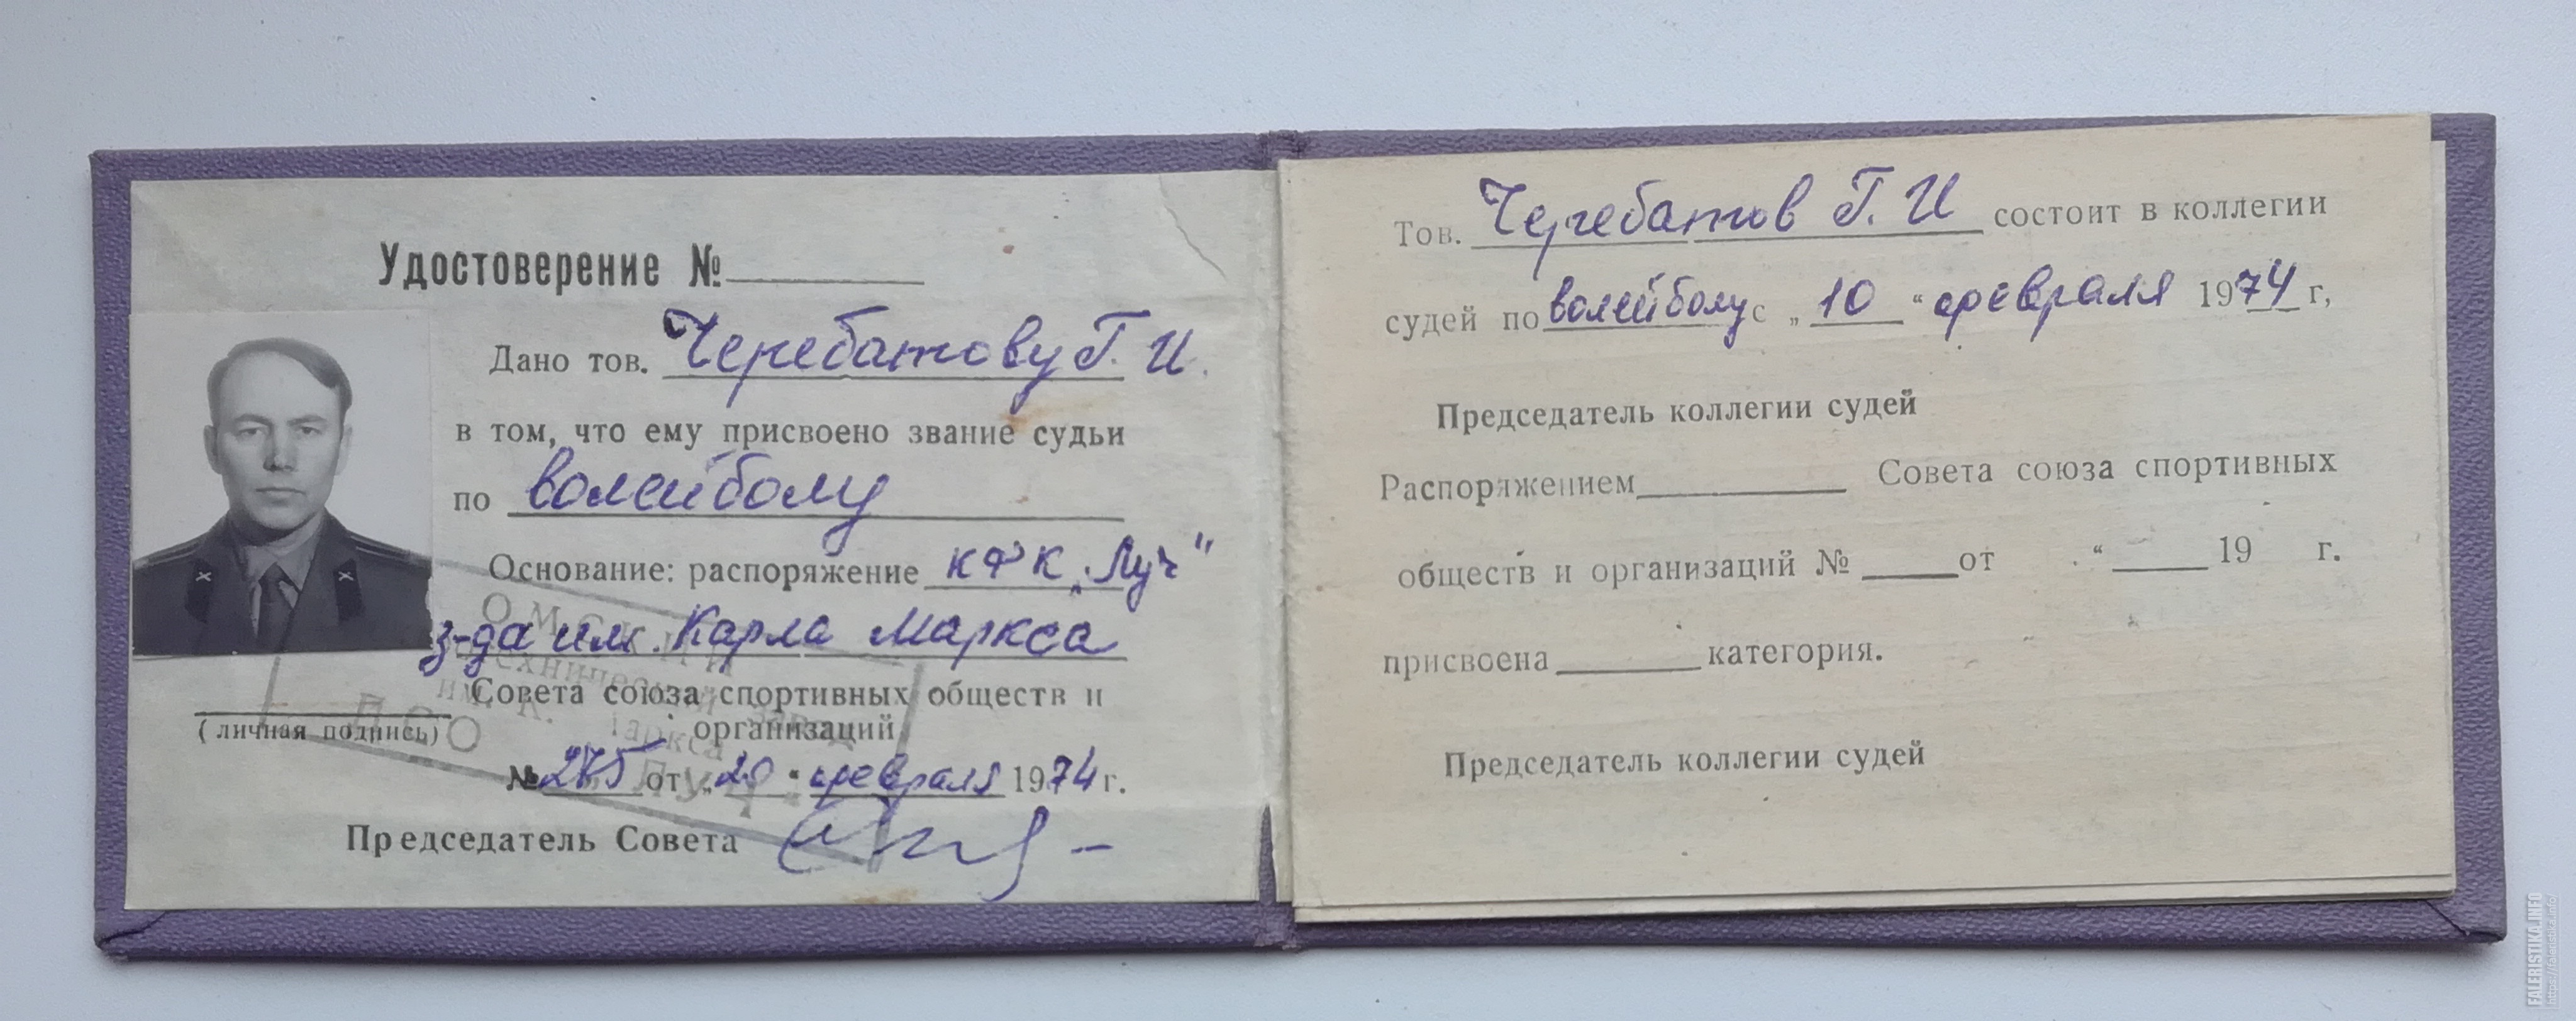 Удостоверение №
Дано тов. Черебатову Г. И.
в том, что ему присвоено звание судьи
по волейболу
Основание: распоряжение КФК „Луч"
з-да им. Карла Маркса
Совета союза спортивных обществ и
организаций
(личная подпись)
№ 275 от „20" февраля 1974 г.
Председатель Совета
ОМСКИЙ
технический завод
им. К. Маркса
ДСО
ЛУЧ
Тов. Черебатов Г. И состоит в коллегии
судей по волейболу с „10" февраля 1974 г,
Председатель коллегии судей
Распоряжением Совета союза спортивных
обществ и организаций № от " 19 г.
присвоена категория.
Председатель коллегии судей
FALERISTIKA.INFO